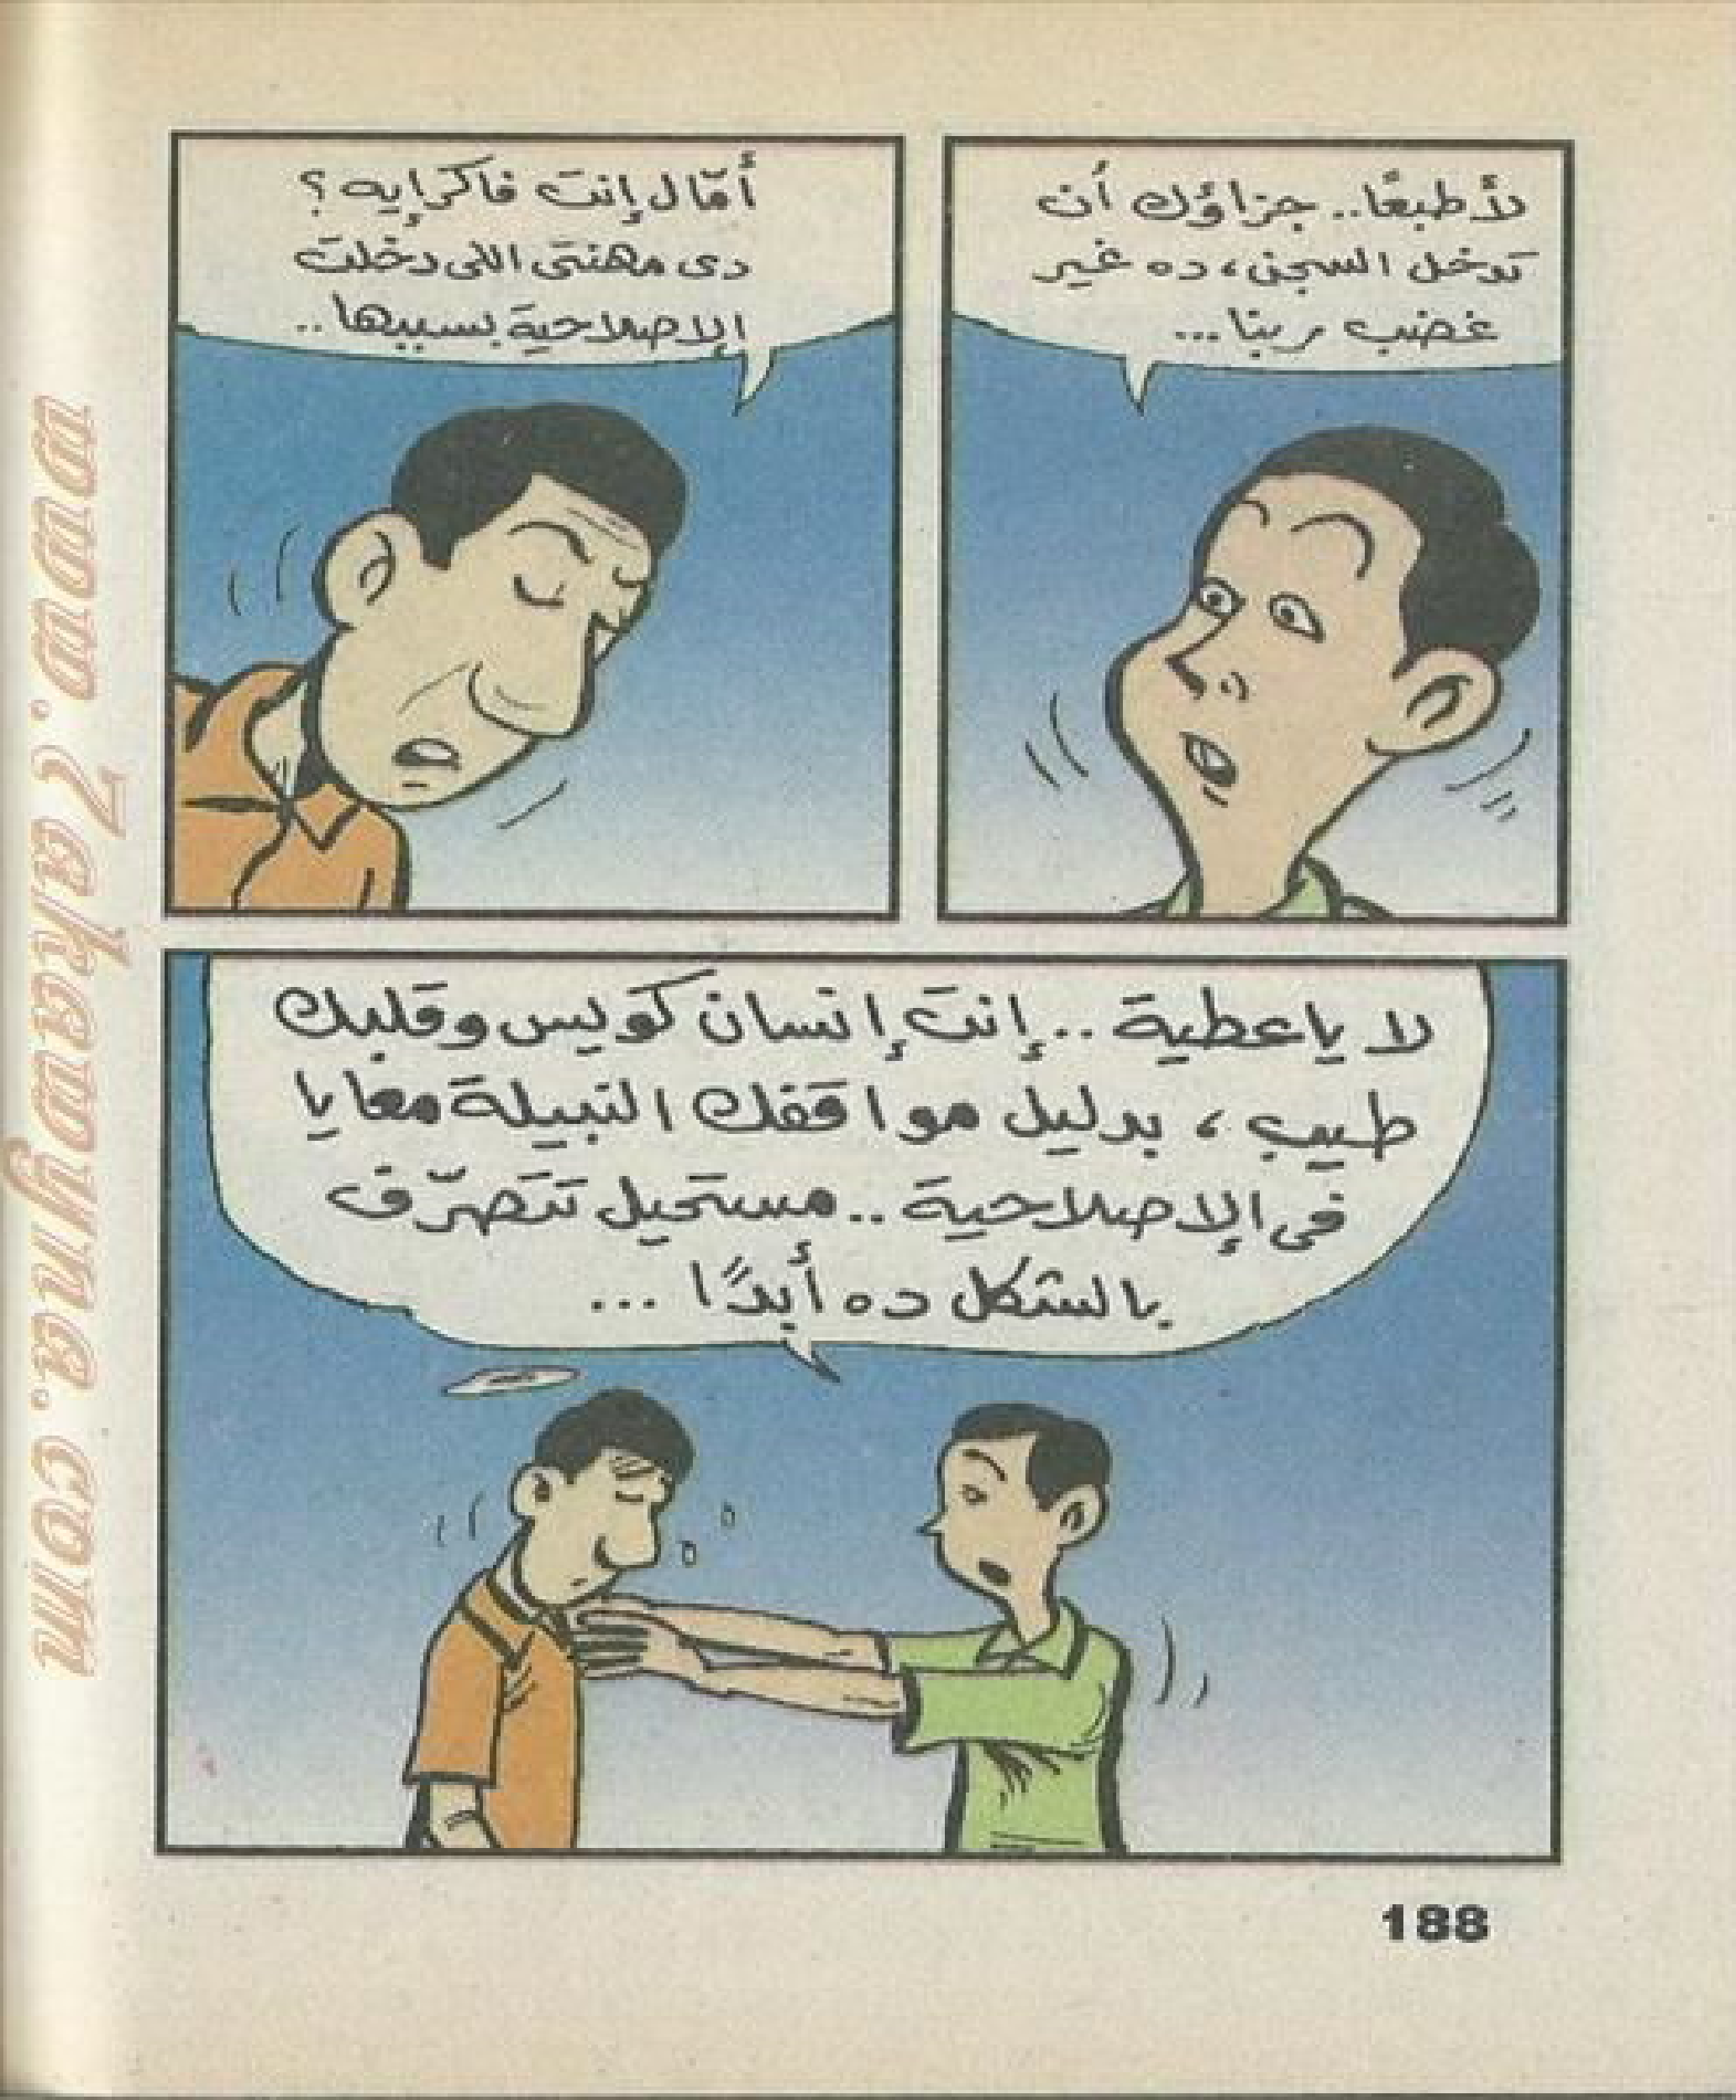 لأ طبعًا.. جزاؤك أن
تدخل السجن، ده غير
غضب ربنا...
أمّال إنت فاكر إيه؟
دى مهنتى اللى دخلت
الإصلاحية بسببها..
لا يا عطية.. إنت إنسان كويس وقلبك
طيب، بدليل مواقفك النبيلة معايا
فى الإصلاحية.. مستحيل تتصرّف
بالشكل ده أبدًا...
188
www.7akawyna.com